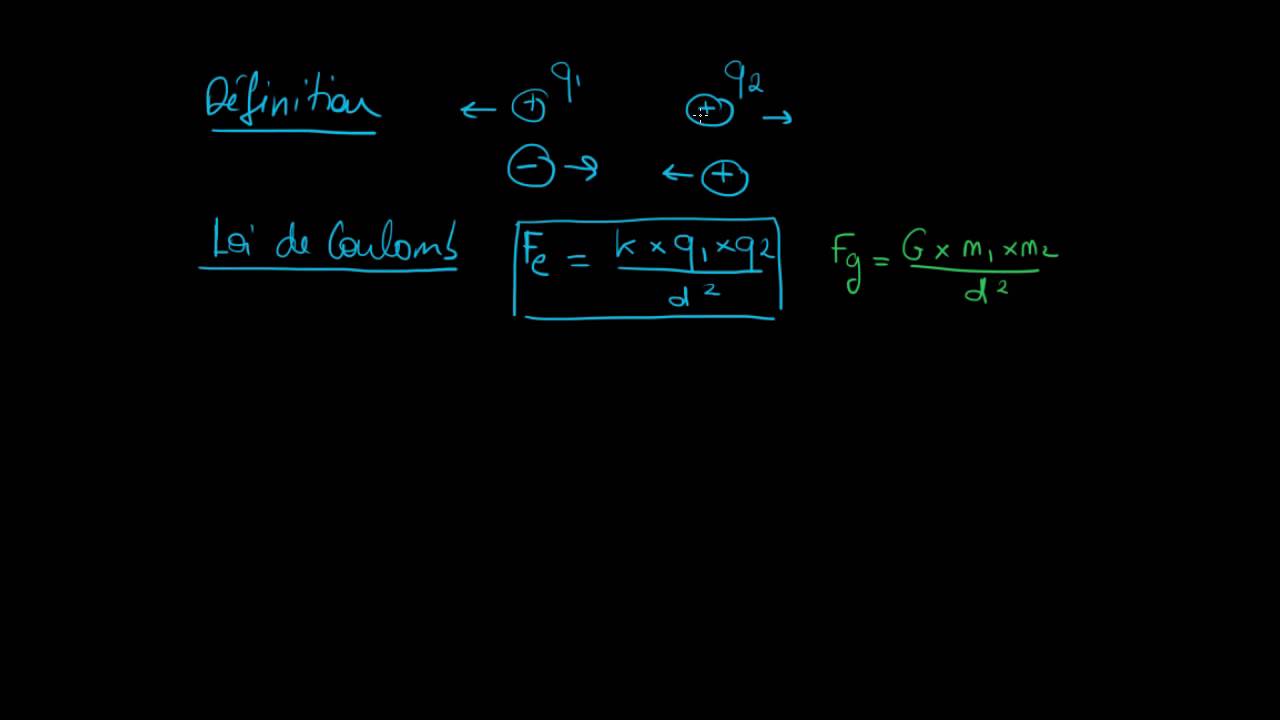 Définition ← + q₁ + q₂ →
- → ← +
Loi de Coulomb Fe = k × q₁ × q₂ / d² Fg = G × m₁ × m₂ / d²